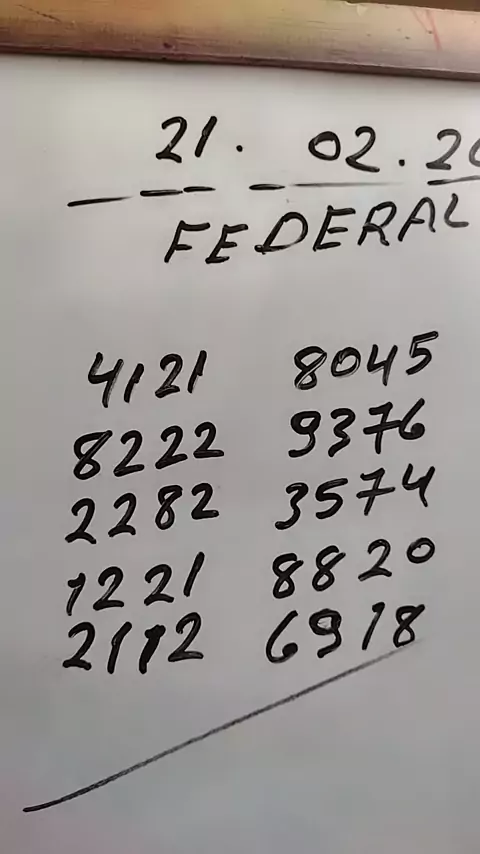 21. 02. 20
FEDERAL
4121 8045
8222 9376
2282 3574
1221 8820
2112 6918